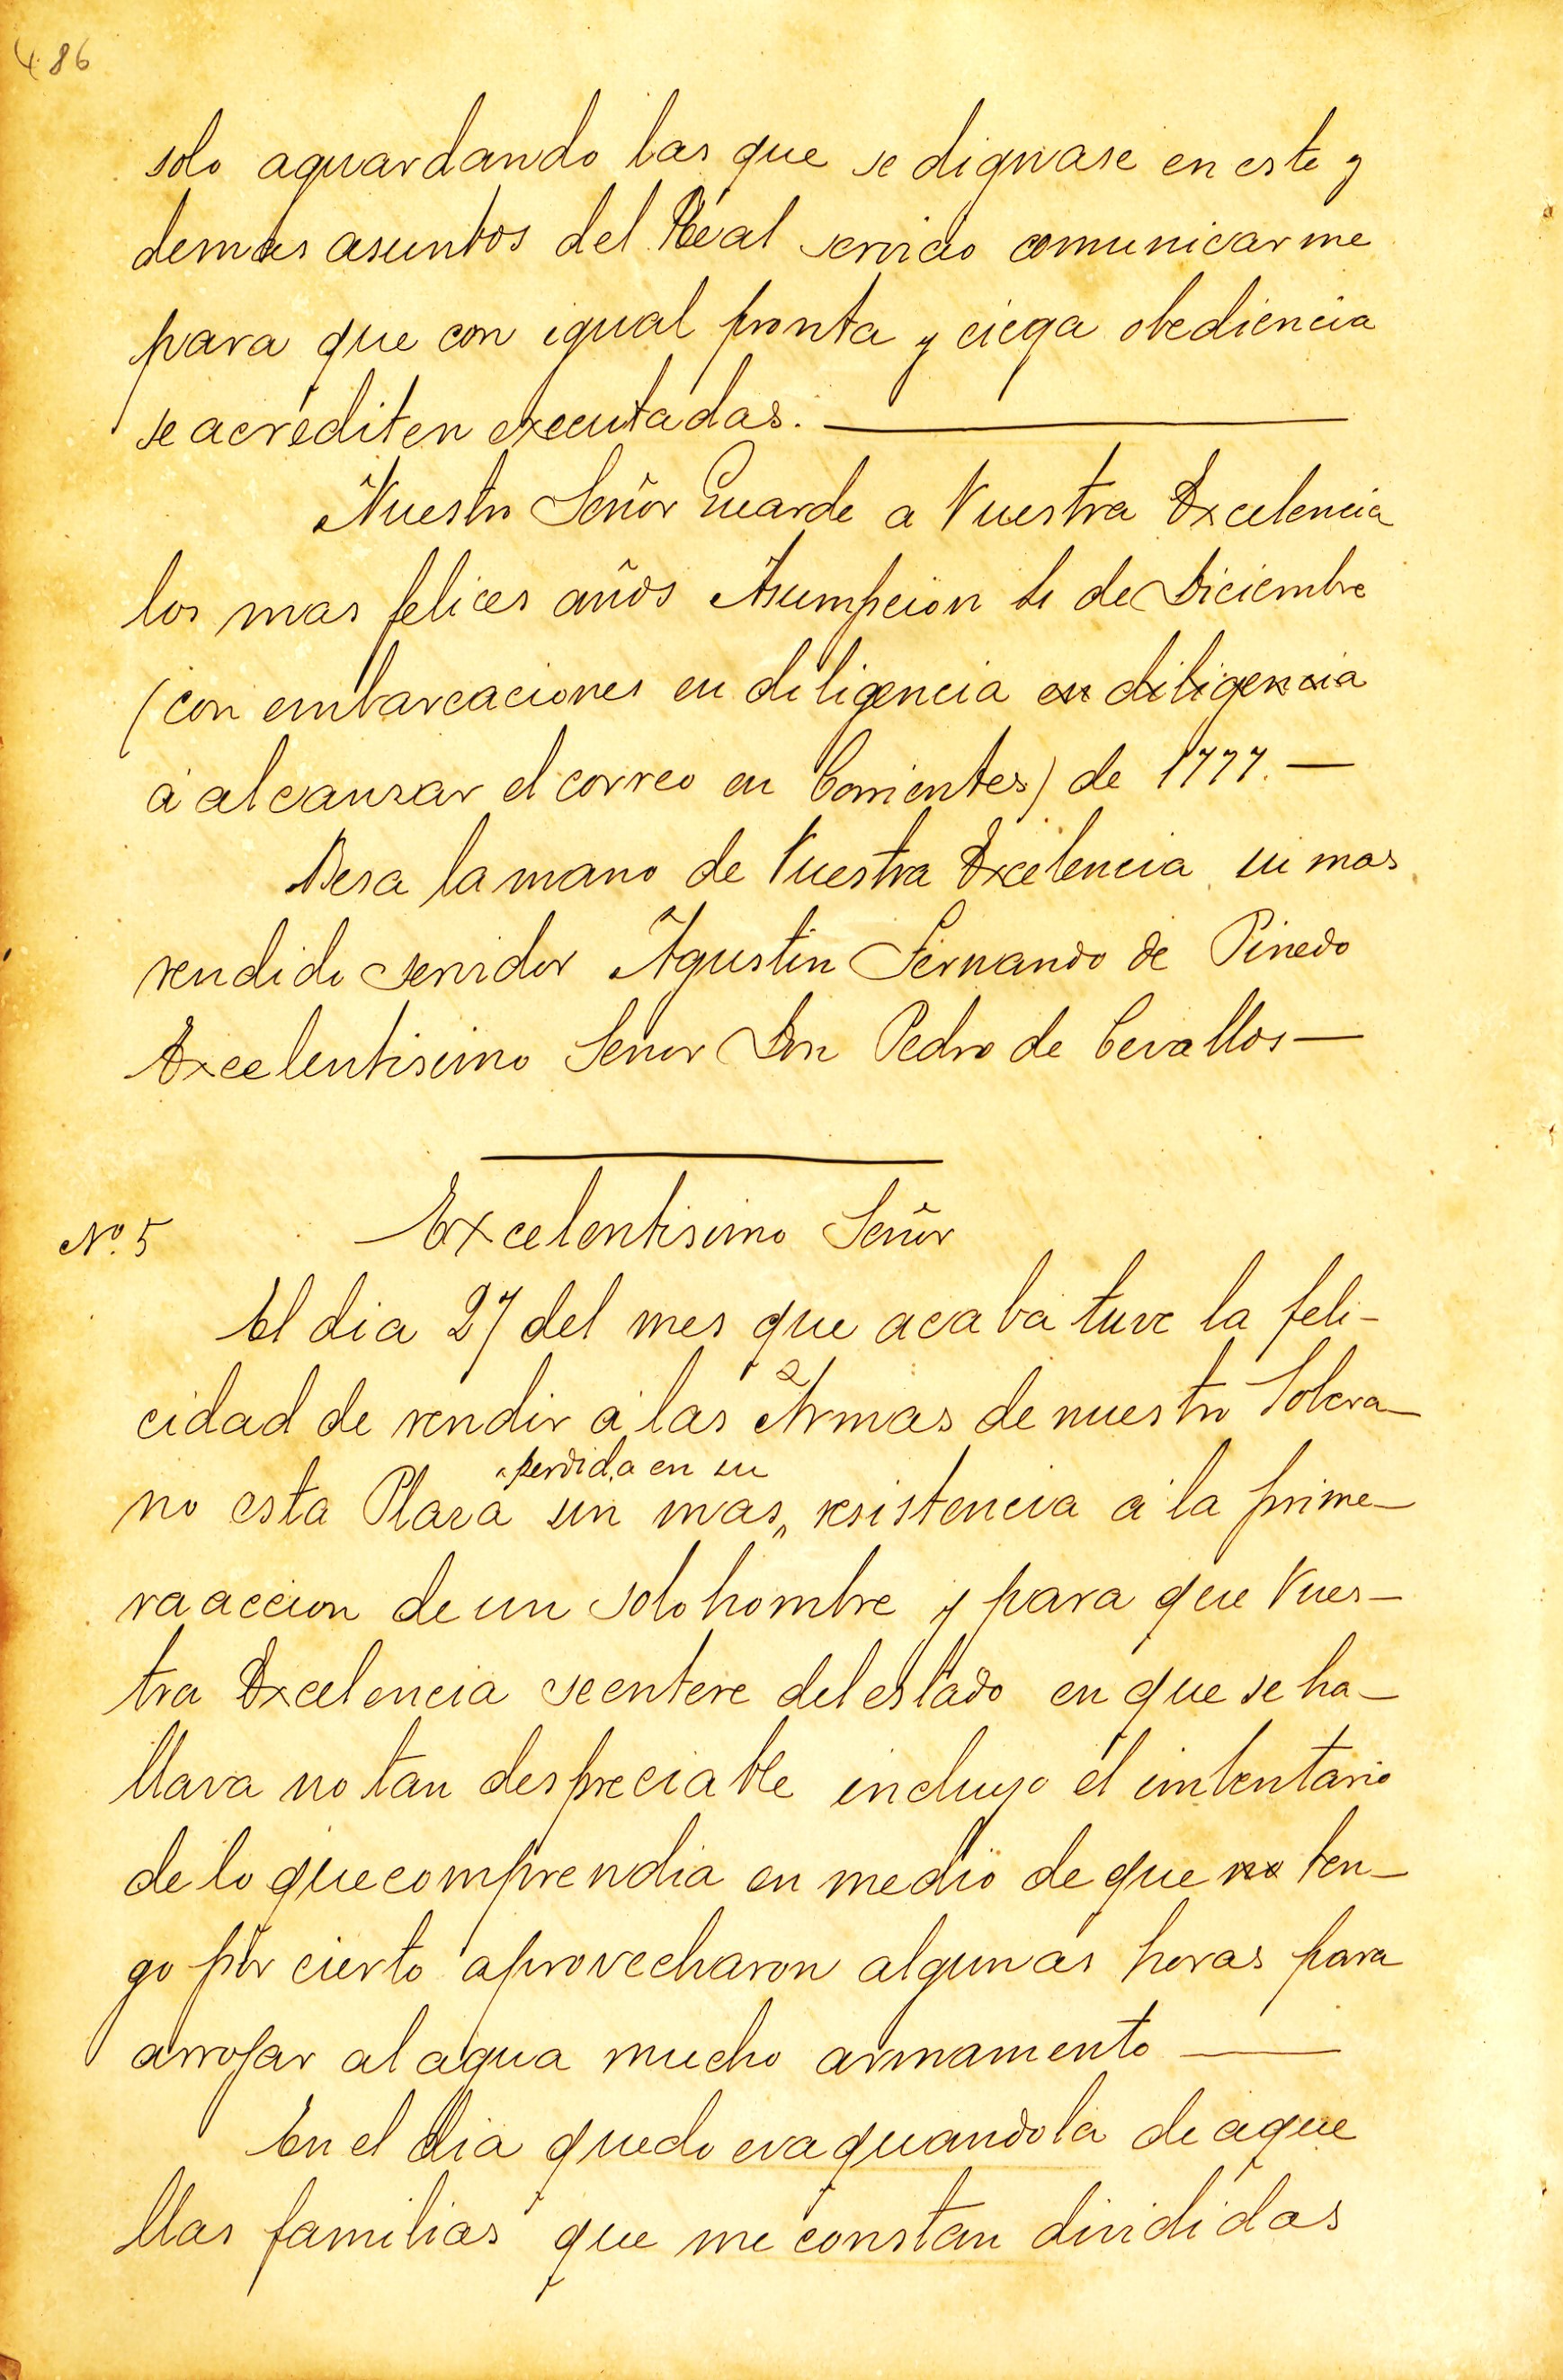 486
solo aguardando las que se dignase en este y
demas asuntos del Real servicio comunicarme
para que con igual pronta y ciega obediencia
se acrediten executadas. ———
Nuestro Señor Guarde a Vuestra Excelencia
los mas felices años Asumpcion de Diciembre
(con embarcaciones en diligencia en diligencia
á alcanzar el correo en Corrientes) de 1777. —
Besa la mano de Vuestra Excelencia su mas
rendido servidor Agustin Fernando de Pinedo
Excelentisimo Señor Don Pedro de Cevallos —
Nº. 5 Excelentisimo Señor
El dia 27 del mes que acaba tuve la feli-
cidad de rendir á las Armas de nuestro Sobera-
perdida en su
no esta Plaza sin mas „ resistencia a la prime-
ra accion de un solo hombre y para que Vues-
tra Excelencia se entere del estado en que se ha-
llava no tan despreciable incluyo el imbentario
de lo que comprendia en medio de que no ten-
go por cierto aprovecharon algunas horas para
arrojar al agua mucho armamento ——
En el dia quedo evaquandola de aque
llas familias que me constan divididas